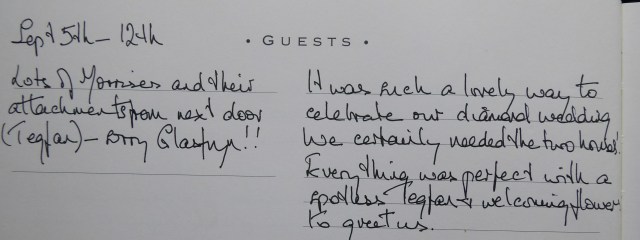 Sept 5th – 12th
• GUESTS •
Lots of Morrises and their
attachments from next door
(Tegfan) – Bryn Glasfryn!!
It was such a lovely way to
celebrate our diamond wedding
We certainly needed the two houses!
Everything was perfect with a
spotless Tegfan & welcoming flowers
to greet us.